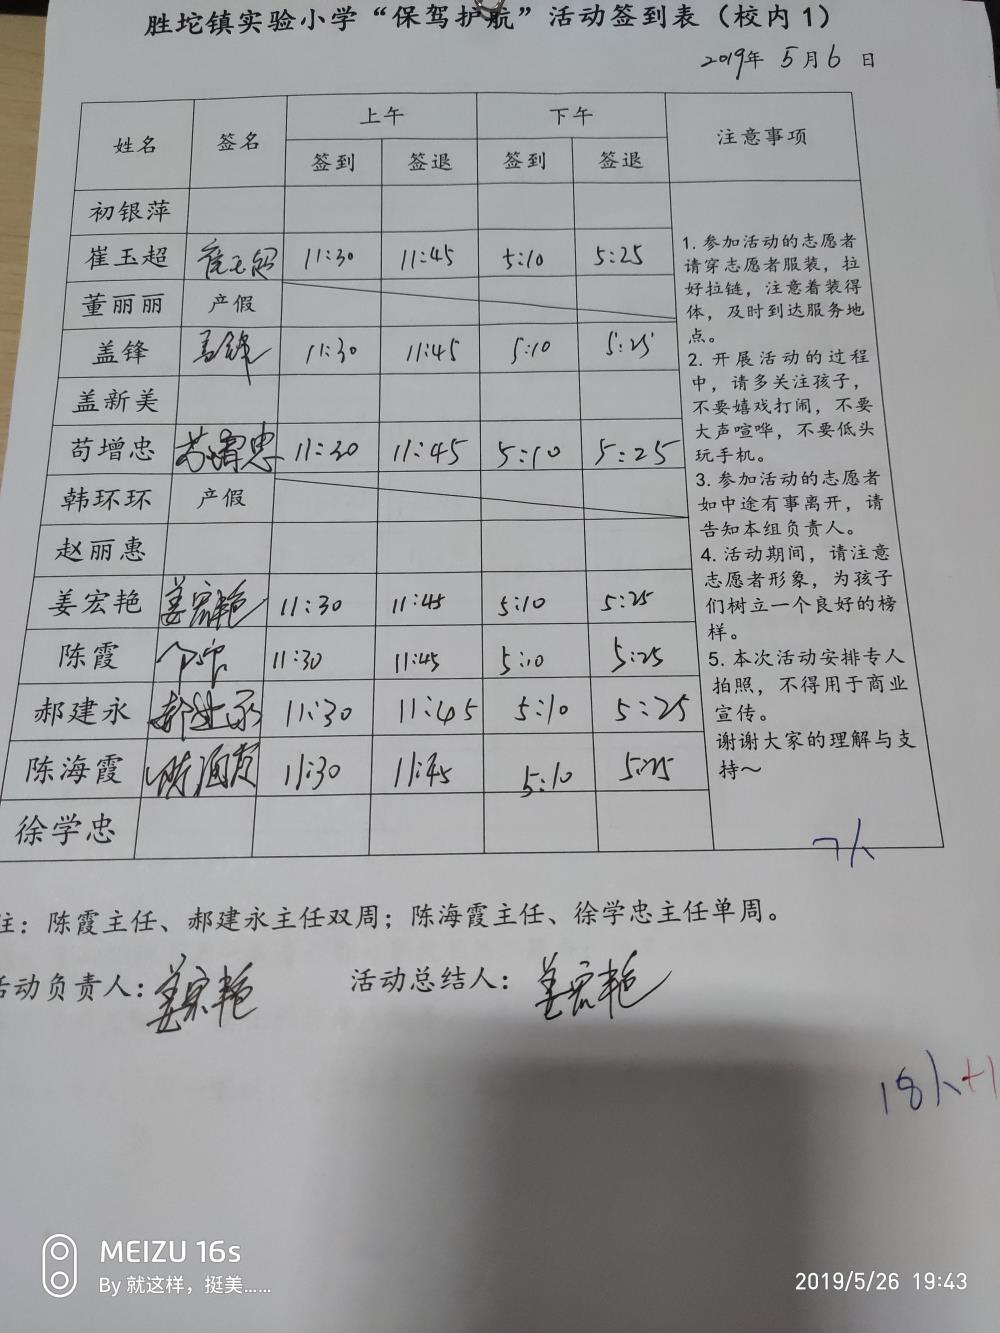 胜坨镇实验小学“保驾护航”活动签到表（校内1）
2019年 5月6 日
姓名 签名 上午 下午 注意事项
签到 签退 签到 签退
初银萍
崔玉超 崔玉超 11:30 11:45 5:10 5:25
董丽丽 产假
盖锋 盖锋 11:30 11:45 5:10 5:25
盖新美
苟增忠 苟增忠 11:30 11:45 5:10 5:25
韩环环 产假
赵丽惠
姜宏艳 姜宏艳 11:30 11:45 5:10 5:25
陈霞 11:30 11:45 5:10 5:25
郝建永 郝建永 11:30 11:45 5:10 5:25
陈海霞 陈海霞 11:30 11:45 5:10 5:25
徐学忠
1. 参加活动的志愿者
请穿志愿者服装，拉
好拉链，注意着装得
体，及时到达服务地
点。
2. 开展活动的过程
中，请多关注孩子，
不要嬉戏打闹，不要
大声喧哗，不要低头
玩手机。
3. 参加活动的志愿者
如中途有事离开，请
告知本组负责人。
4. 活动期间，请注意
志愿者形象，为孩子
们树立一个良好的榜
样。
5. 本次活动安排专人
拍照，不得用于商业
宣传。
谢谢大家的理解与支
持～
7人
注：陈霞主任、郝建永主任双周；陈海霞主任、徐学忠主任单周。
活动负责人：姜宏艳 活动总结人：姜宏艳
18人+1
MEIZU 16s
By 就这样，挺美……
2019/5/26 19:43